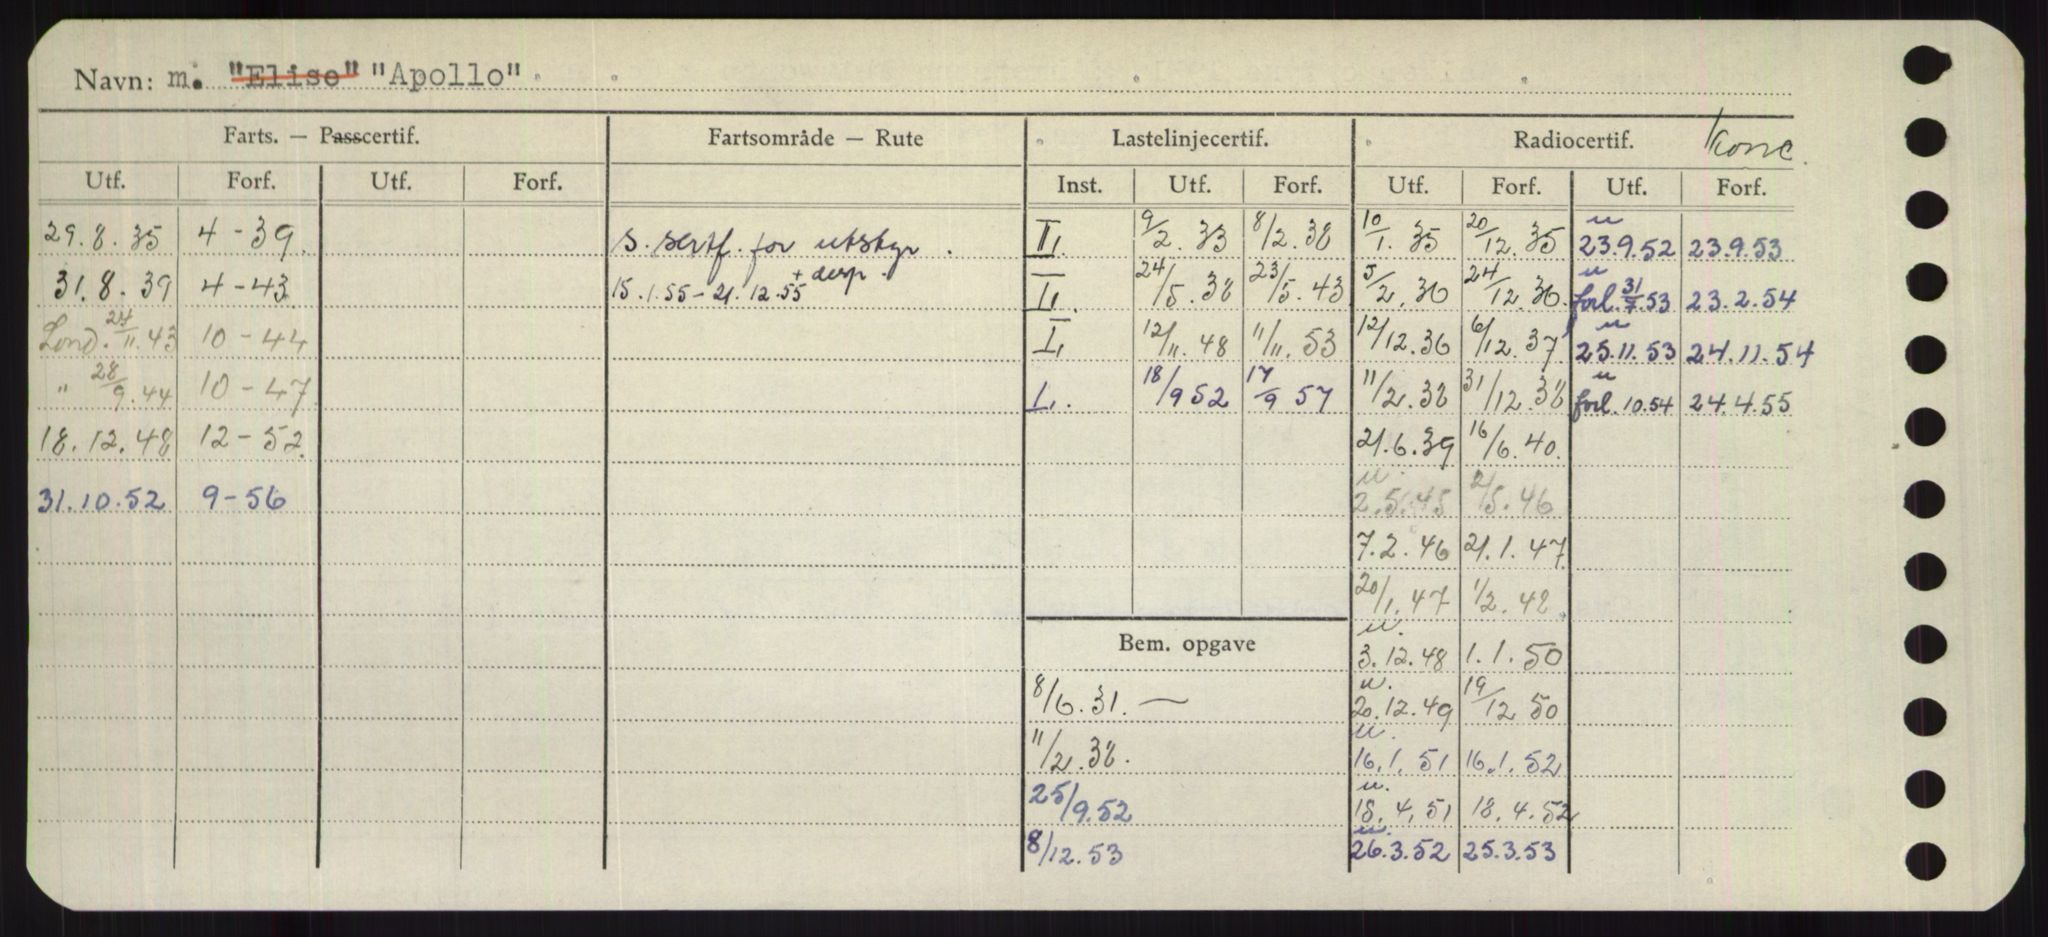 Navn: m. "Elise" "Apollo"
Farts. — Passcertif. Fartsområde — Rute Lastelinjecertif. Radiocertif.
Utf. Forf. Utf. Forf. Inst. Utf. Forf. Utf. Forf. Utf. Forf.
29.8.35 4-39. S. sertf. for utstyr. II. 9/2.33 8/2.38 10/1.35 20/12.35 u 23.9.52 23.9.53
31.8.39 4-43 15.1.55-21.12.55 + desp. I. 24/5.38 23/5.43 5/2.36 24/12.36. u forl. 31/7.53 23.2.54
Lond. 24/11.43 10-44 I. 12/11.48 11/11.53 12/12.36 6/12.37 u 25.11.53 24.11.54
" 28/9.44 10-47 I. 18/9 52 17/9 57 11/2.38 31/12.38 u forl. 10.54 24.4.55
18.12.48 12-52. 21.6.39 16/6.40.
31.10.52 9-56 u. 2.5.45 2/5.46
7.2.46 21.1.47
20/1.47 1/2.48
Bem. opgave u. 3.12.48 1.1.50
8/6.31. — u. 20.12.49 19/12 50
11/2.38. u. 16.1.51 16.1.52
25/9.52 u. 18.4.51 18.4.52
8/12.53 u. 26.3.52 25.3.53